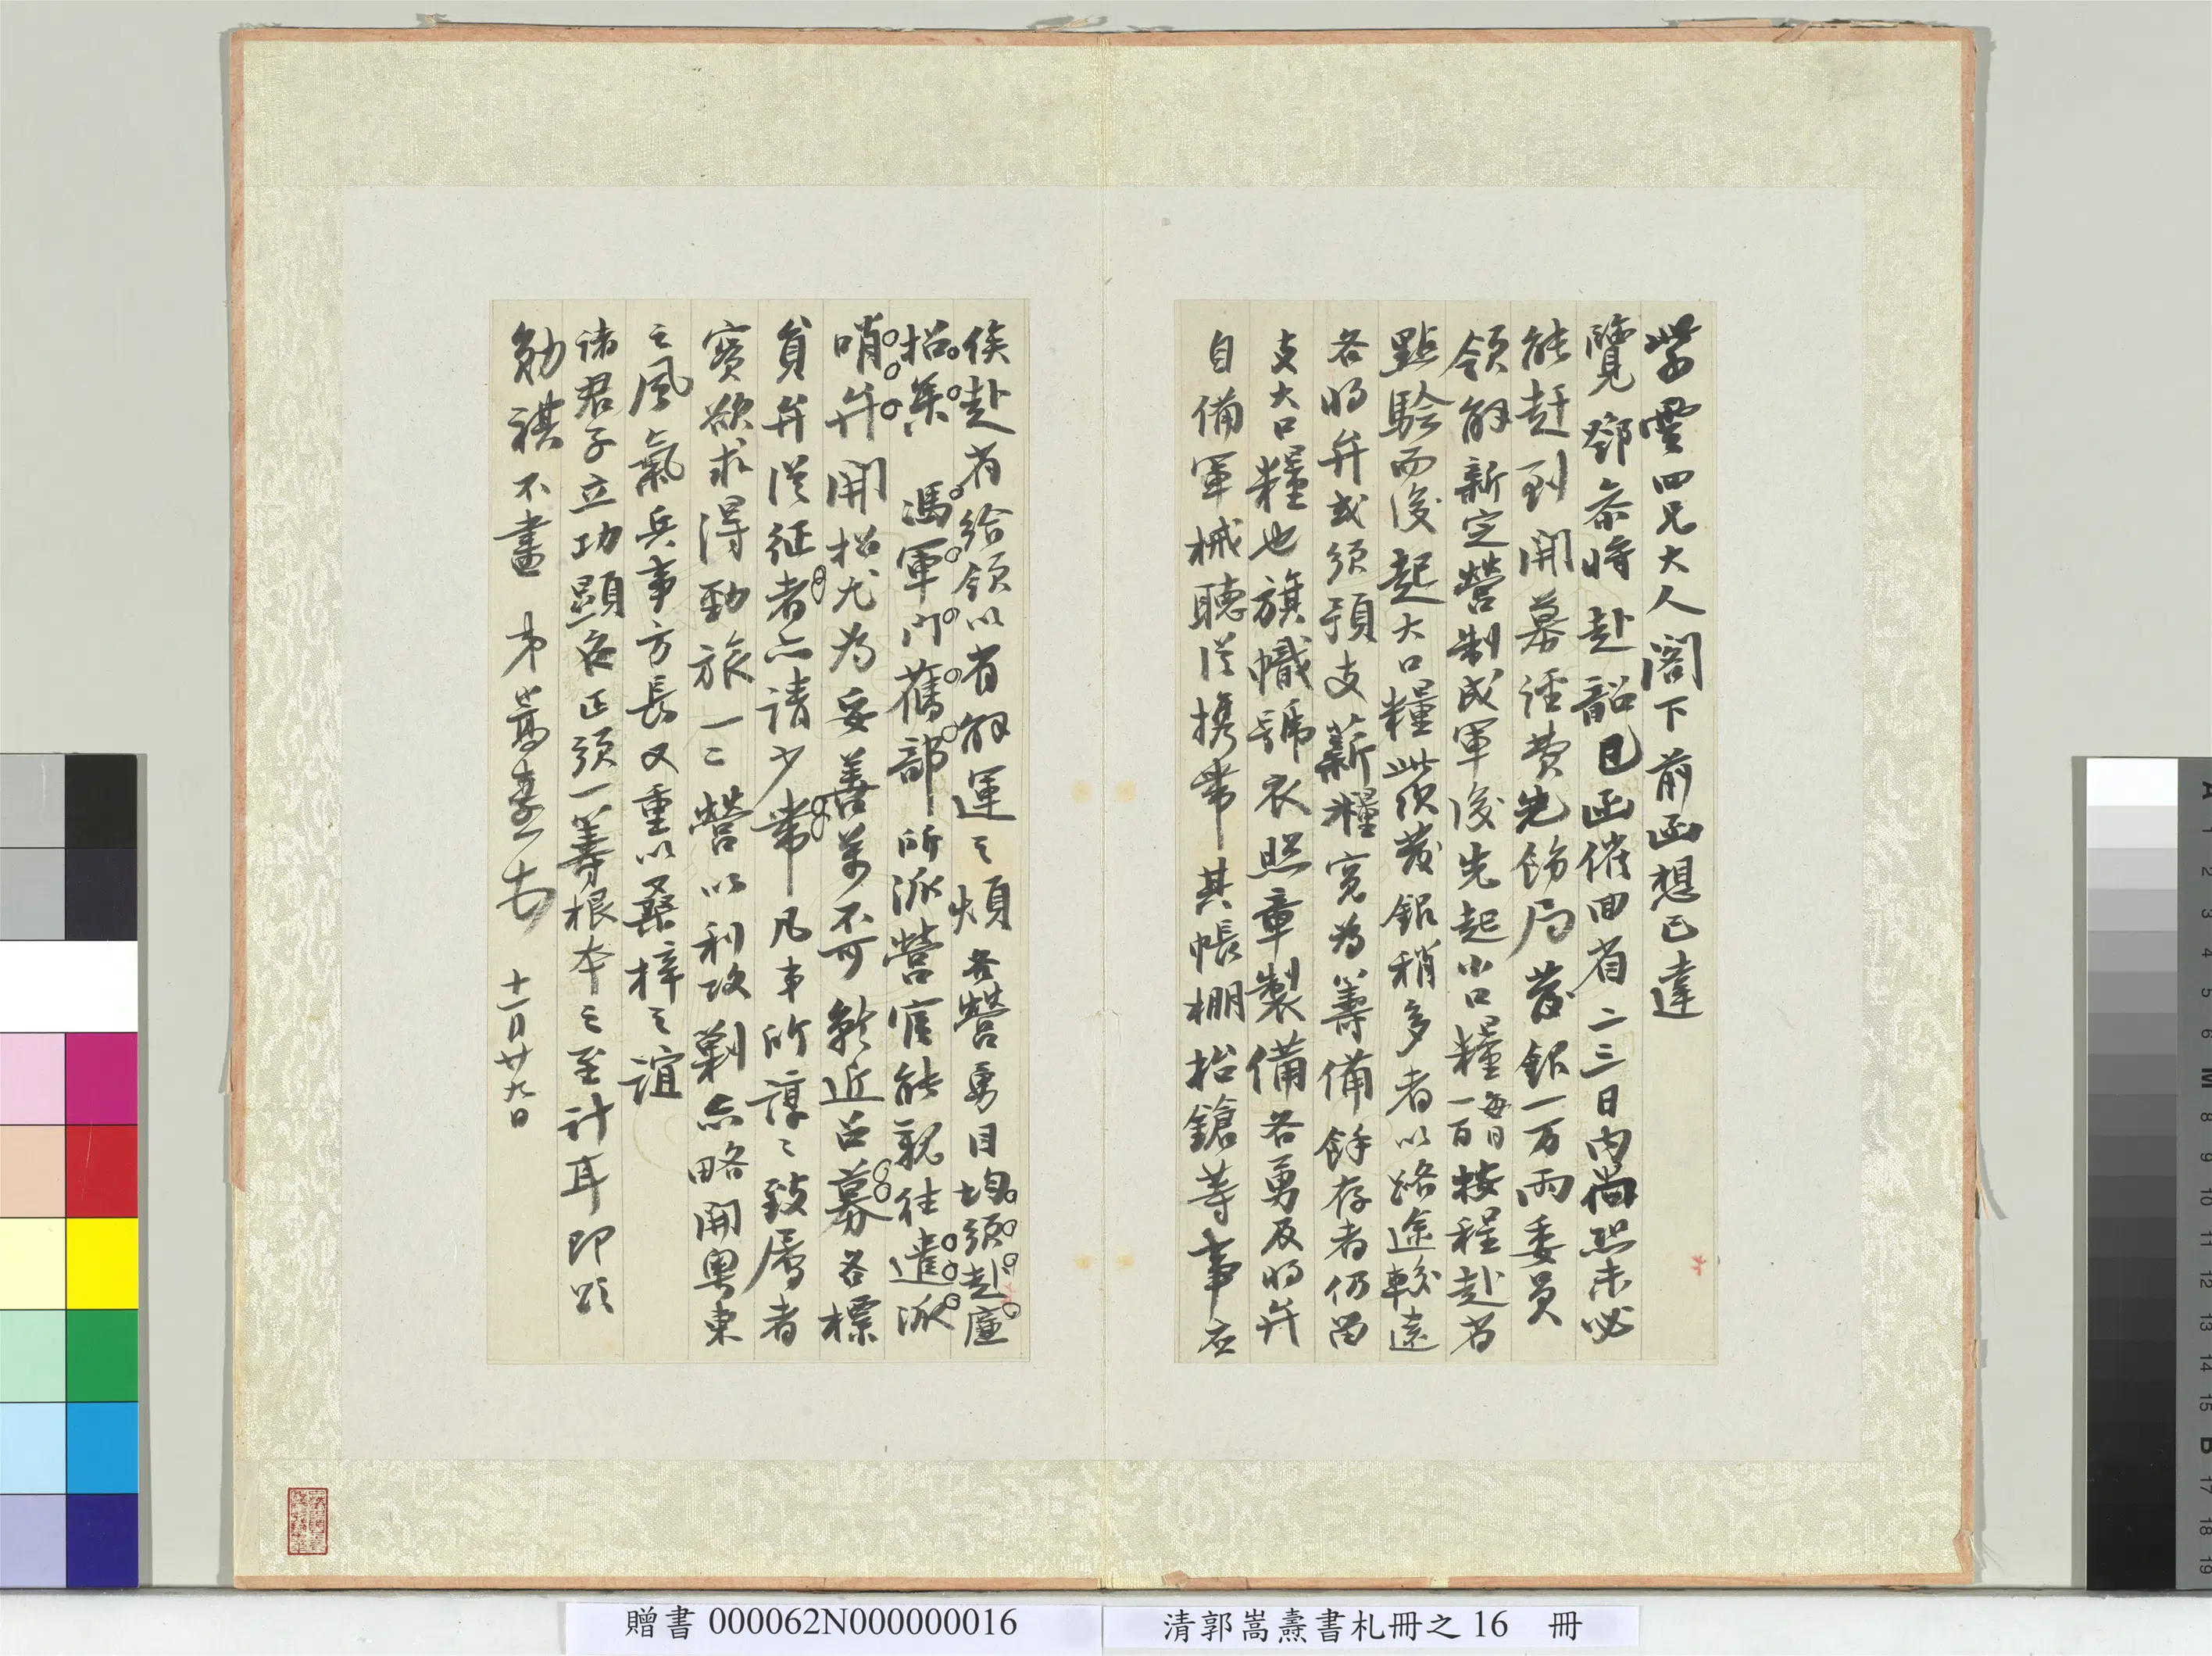 紫雲四兄大人閣下前函想已達
覽鄧參將赴韶已函催回省二三日內尚恐未必
能赶到開募譁費先飭局發銀一万兩委員
領解新定營制成軍後先起小口糧每日一百按程赴省
點驗而後起大口糧此須發銀稍多者以路途較遠
各將弁或須預支薪糧寬為籌備餘存者仍留
支大口糧也旗幟號衣照章製備各勇及將弁
自備軍械聽從攜帶其帳棚抬鎗等事應
俟赴省給領以省解運之煩各營勇目均須赴廉
招募馮軍門舊部所派營官能親往遣派
哨弁開招尤為妥善萬不可就近召募各標
貧弁從征者亦請少帶凡事所諄諄致屬者
實欲求得勁旅一二營以利攻剿亦略開粵東
之風氣兵事方長又重以桑梓之誼
諸君子立功顯名正須一籌根本之至計耳即頌
勛祺不盡 弟嵩燾頓 十一月廿九日
贈書 000062N000000016
清郭嵩燾書札冊之 16 冊